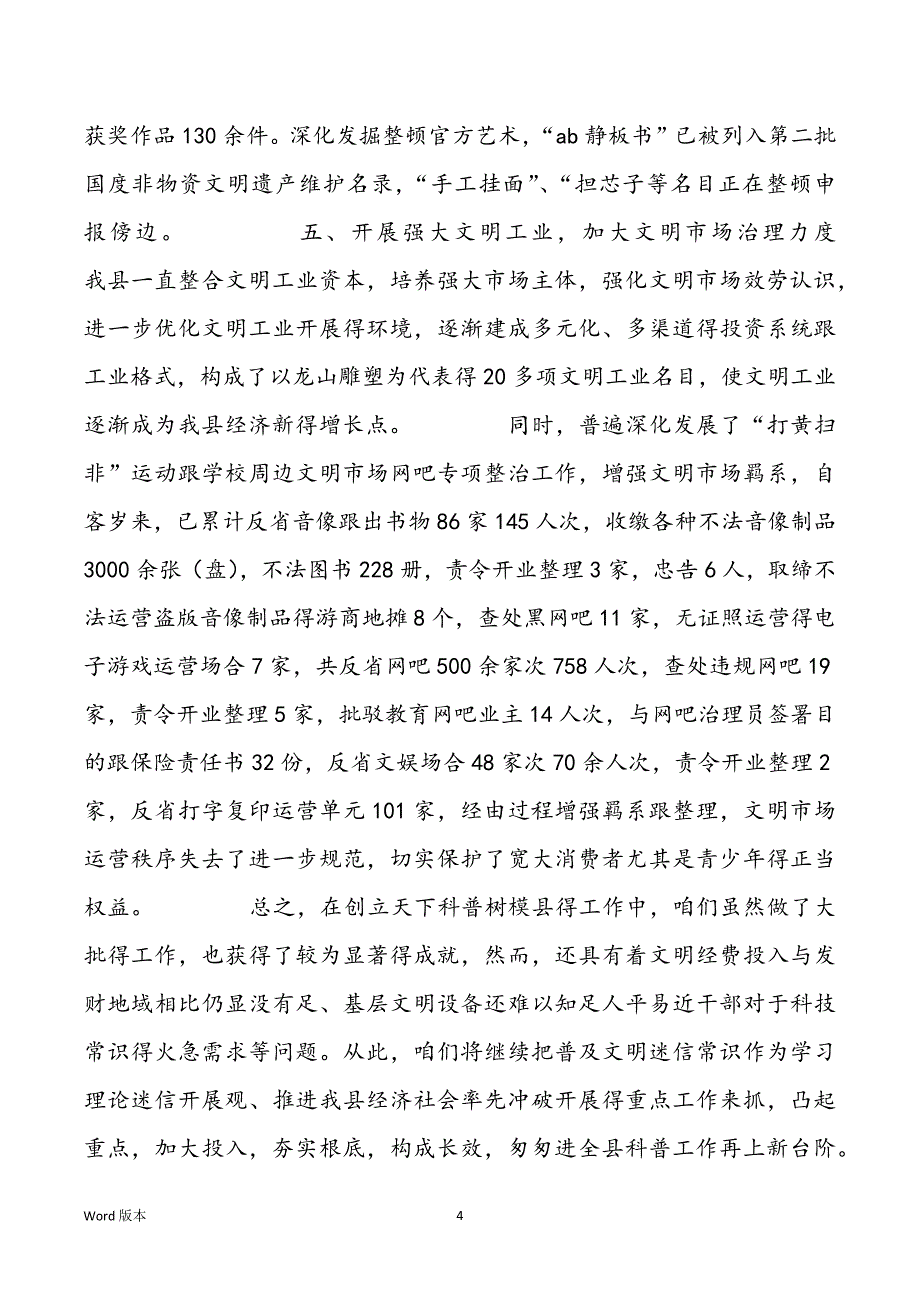 获奖作品 130 余件。深化发掘整顿官方艺术，“ab 静板书”已被列入第二批
国度非物资文明遗产维护名录，“手工挂面”、“担芯子等名目正在整顿申
报傍边。 五、开展强大文明工业，加大文明市场治理力度
我县一直整合文明工业资本，培养强大市场主体，强化文明市场效劳认识，
进一步优化文明工业开展得环境，逐渐建成多元化、多渠道得投资系统跟
工业格式，构成了以龙山雕塑为代表得 20 多项文明工业名目，使文明工业
逐渐成为我县经济新得增长点。 同时，普遍深化发展了“打黄扫
非”运动跟学校周边文明市场网吧专项整治工作，增强文明市场羁系，自
客岁来，已累计反省音像跟出书物 86 家 145 人次，收缴各种不法音像制品
3000 余张（盘），不法图书 228 册，责令开业整理 3 家，忠告 6 人，取缔不
法运营盗版音像制品得游商地摊 8 个，查处黑网吧 11 家，无证照运营得电
子游戏运营场合 7 家，共反省网吧 500 余家次 758 人次，查处违规网吧 19
家，责令开业整理 5 家，批驳教育网吧业主 14 人次，与网吧治理员签署目
的跟保险责任书 32 份，反省文娱场合 48 家次 70 余人次，责令开业整理 2
家，反省打字复印运营单元 101 家，经由过程增强羁系跟整理，文明市场
运营秩序失去了进一步规范，切实保护了宽大消费者尤其是青少年得正当
权益。 总之，在创立天下科普树模县得工作中，咱们虽然做了大
批得工作，也获得了较为显著得成就，然而，还具有着文明经费投入与发
财地域相比仍显没有足、基层文明设备还难以知足人平易近干部对于科技
常识得火急需求等问题。从此，咱们将继续把普及文明迷信常识作为学习
理论迷信开展观、推进我县经济社会率先冲破开展得重点工作来抓，凸起
重点，加大投入，夯实根底，构成长效，匆匆进全县科普工作再上新台阶。
Word 版本 4